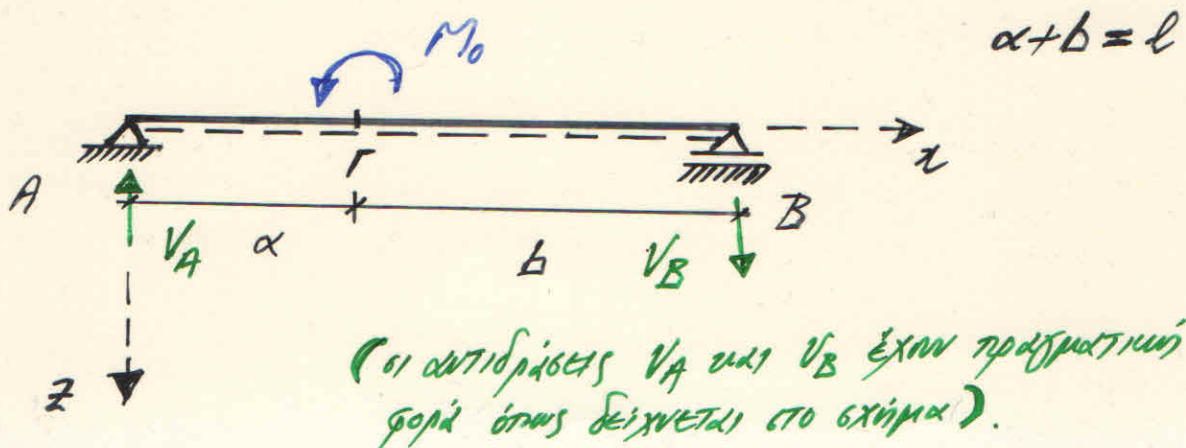 α+b=l
M₀
x
Γ
A
B
V_A
α
b
V_B
z
(οι αντιδράσεις V_A και V_B έχουν πραγματική
φορά όπως δείχνεται στο σχήμα).